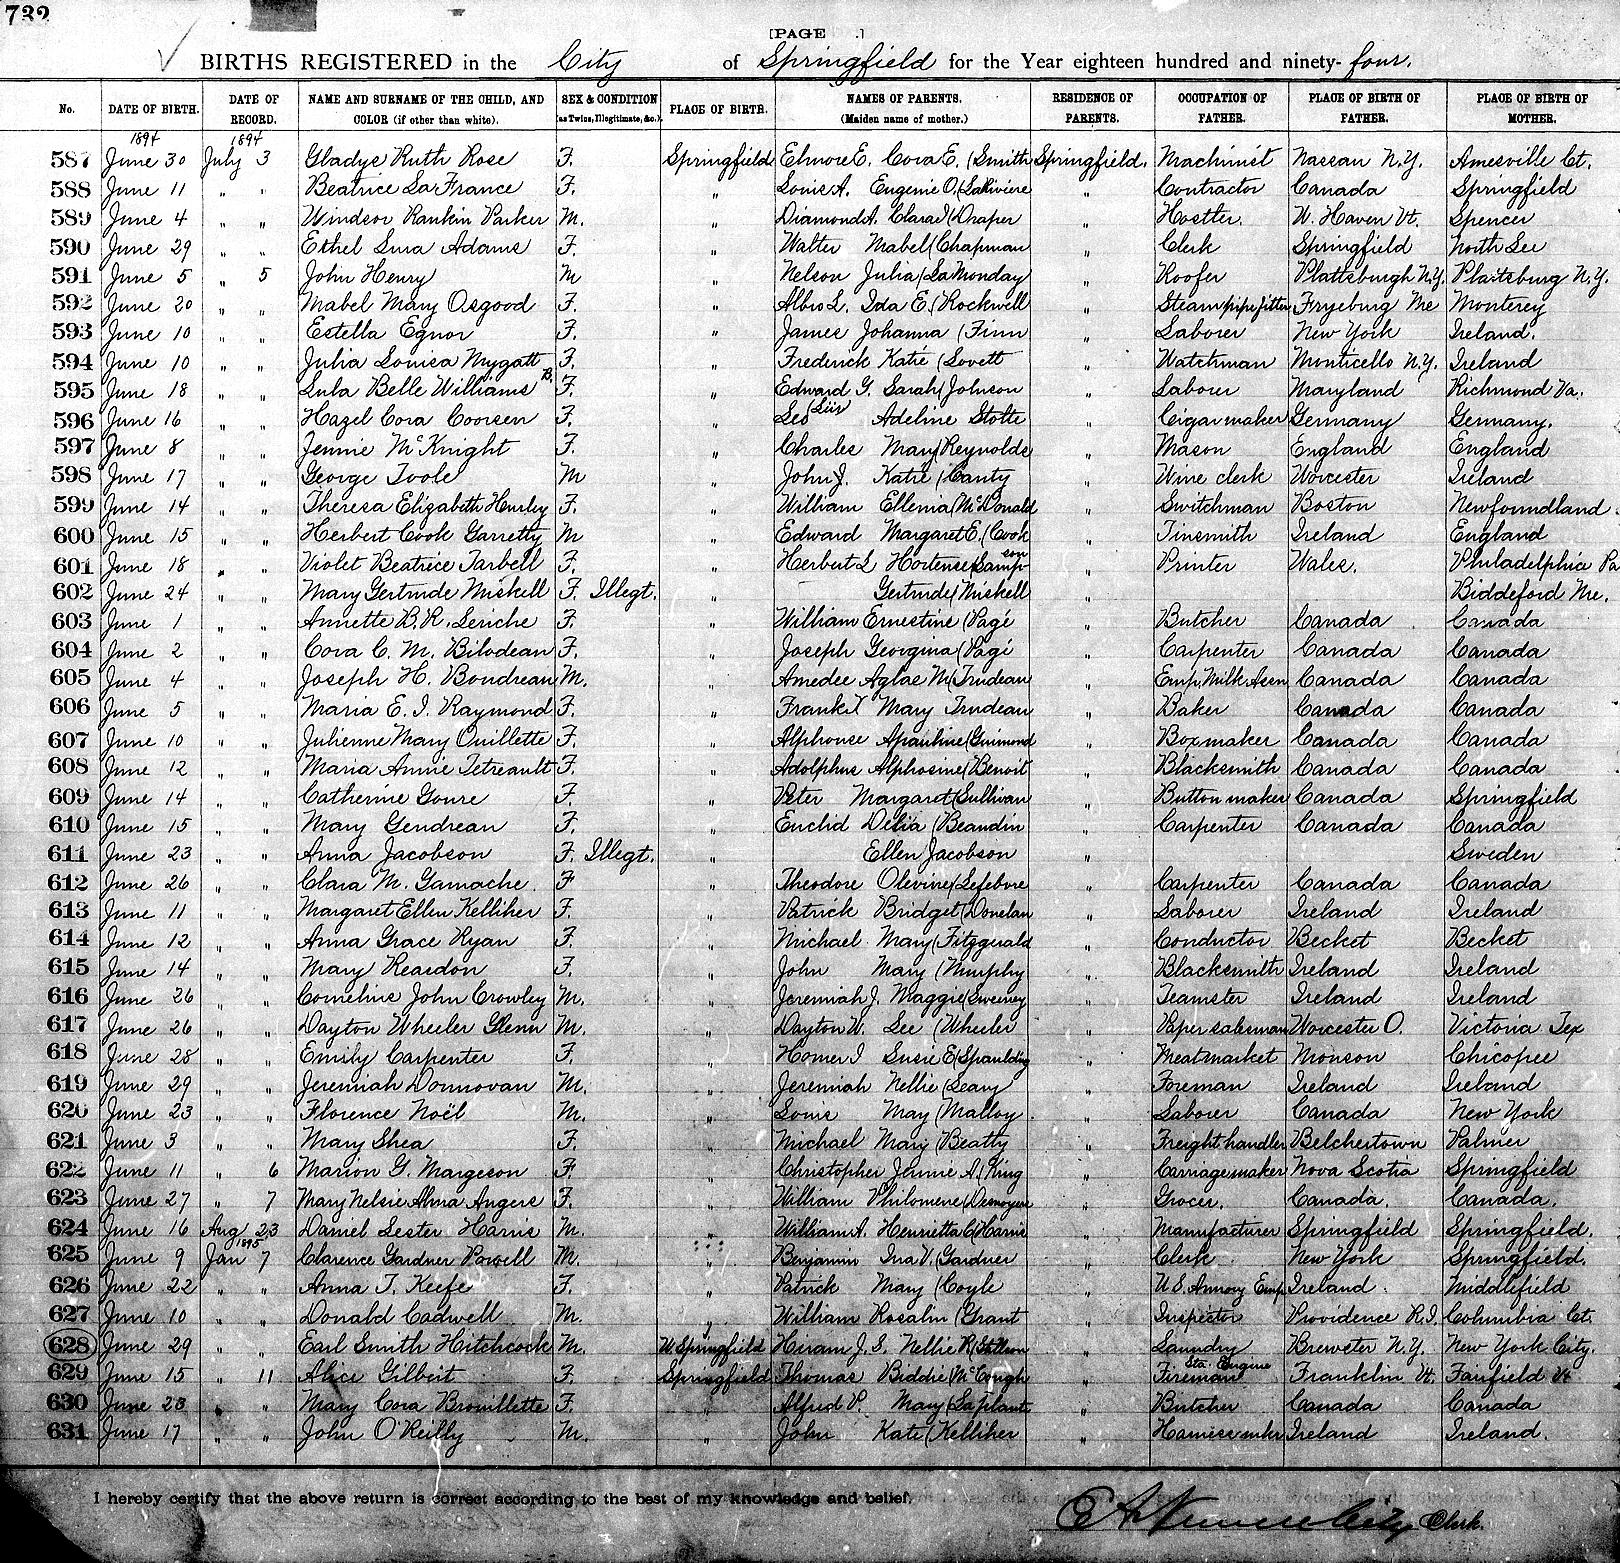 732
[PAGE .]
BIRTHS REGISTERED in the City of Springfield for the Year eighteen hundred and ninety-four.
No. DATE OF BIRTH. DATE OF RECORD. NAME AND SURNAME OF THE CHILD, AND COLOR (if other than white). SEX & CONDITION (as Twins, Illegitimate, &c.) PLACE OF BIRTH. NAMES OF PARENTS. (Maiden name of mother.) RESIDENCE OF PARENTS. OCCUPATION OF FATHER. PLACE OF BIRTH OF FATHER. PLACE OF BIRTH OF MOTHER.
1894 1894
587 June 30 July 3 Gladys Ruth Rose F. Springfield Elmore E. Cora E. (Smith Springfield. Machinist Nassau N.Y. Amesville Ct.
588 June 11 " " Beatrice LaFrance F. " Louis A. Eugenie O. (LaRiviere " Contractor Canada Springfield
589 June 4 " " Windsor Rankin Parker M. " Diamond A. Clara I (Draper " Hostler. W. Haven Vt. Spencer
590 June 29 " " Ethel Lura Adams F. " Walter Mabel (Chapman " Clerk Springfield North Lee
591 June 5 " 5 John Henry M " Nelson Julia (LaMonday " Roofer Plattsburgh N.Y. Plattsburg N.Y.
592 June 20 " " Mabel Mary Osgood F. " Albro L. Ida E. (Rockwell " Steam pipe fitter Fryeburg Me Monterey
593 June 10 " " Estella Egnor F. " James Johanna (Finn " Laborer New York Ireland.
594 June 10 " " Julia Louisa Mygatt F. " Frederick Katie (Lovett " Watchman Monticello N.Y. Ireland
595 June 18 " " Lula Belle Williams B. F. " Edward G. Sarah (Johnson " Laborer Maryland Richmond Va.
596 June 16 " " Hazel Cora Coorsen F. " Geo Adeline Stolte " Cigar maker Germany Germany.
597 June 8 " " Jennie McKnight F. " Charles Mary (Reynolds " Mason England England
598 June 17 " " George Toole M " John J. Katie (Canty " Wine clerk Worcester Ireland
599 June 14 " " Theresa Elizabeth Hurley F. " William Ellenia (McDonald " Switchman Boston Newfoundland.
600 June 15 " " Herbert Cook Garretty M " Edward Margaret E. (Cook " Tinsmith Ireland England
601 June 18 " " Violet Beatrice Tarbell F. " Herbert L Hortense (Sampson " Printer Wales. Philadelphia Pa
602 June 24 " " Mary Gertrude Miskell F. Illegt. " Gertrude (Miskell " Biddeford Me.
603 June 1 " " Annette B.R. Leriche F. " William Ernestine (Pagé " Butcher Canada Canada
604 June 2 " " Cora C. M. Bilodeau F. " Joseph Georgina (Pagé " Carpenter Canada Canada
605 June 4 " " Joseph H. Boudreau M. " Amedee Aglae M (Trudeau " Emp. Milk Assn Canada Canada
606 June 5 " " Maria E. I. Raymond F. " Frank X Mary Trudeau " Baker Canada Canada
607 June 10 " " Julienne Mary Ouillette F. " Alphonse Apauline (Guimond " Boxmaker Canada Canada
608 June 12 " " Maria Annie Tetreault F. " Adolphus Alphosine (Benoit " Blacksmith Canada Canada
609 June 14 " " Catherine Goure F. " Peter Margaret (Sullivan " Button maker Canada Springfield
610 June 15 " " Mary Gendreau F. " Euclid Delia (Beaudin " Carpenter Canada Canada
611 June 23 " " Anna Jacobson F. Illegt. " Ellen Jacobson " Sweden
612 June 26 " " Clara M. Gamache. F " Theodore Olevine (Lefebvre " Carpenter Canada Canada
613 June 11 " " Margaret Ellen Kelliher F. " Patrick Bridget (Donelan " Laborer Ireland Ireland
614 June 12 " " Anna Grace Ryan F. " Michael Mary (Fitzgerald " Conductor Becket Becket
615 June 14 " " Mary Reardon F. " John Mary (Murphy " Blacksmith Ireland Ireland
616 June 26 " " Cornelius John Crowley M. " Jeremiah J. Maggie (Sweeney " Teamster Ireland Ireland
617 June 26 " " Dayton Wheeler Glenn M. " Dayton W. Lee (Wheeler " Paper salesman Worcester O. Victoria Tex
618 June 28 " " Emily Carpenter F. " Homer I Susie E (Spaulding " Meat market Monson Chicopee
619 June 29 " " Jeremiah Donnovan M. " Jeremiah Nellie (Leary " Foreman Ireland Ireland
620 June 23 " " Florence Noël M. " Louis May (Malloy " Laborer Canada New York
621 June 3 " " Mary Shea F. " Michael Mary (Beatty " Freight handler Belchertown Palmer
622 June 11 " 6 Marion G. Margeson F. " Christopher Jennie A. (King " Carriage maker Nova Scotia Springfield
623 June 27 " 7 Mary Nelsie Alma Angers F. " William Philomene (Desnoyers " Grocer. Canada. Canada.
624 June 16 Aug 23 Daniel Lester Harris M. " William A. Henrietta C (Harris " Manufacturer Springfield Springfield.
625 June 9 1895 Jan 7 Clarence Gardner Powell M. " Benjamin Ina V. (Gardner " Clerk New York Springfield.
626 June 22 " " Anna T. Keefe F. " Patrick Mary (Coyle " U.S. Armory Emp. Ireland Middlefield
627 June 10 " " Donald Cadwell M. " William Rosalin (Grant " Inspector Providence R.I. Columbia Ct.
628 June 29 " " Earl Smith Hitchcock M. W Springfield Hiram J. S. Nellie R (Stillson " Laundry Brewster N.Y. New York City.
629 June 15 " 11 Alice Gilbert F. Springfield Thomas Biddie (McCough " Sta. Engine Fireman Franklin Vt. Fairfield Vt
630 June 23 " " Mary Cora Brouillette F. " Alfred P. Mary (Laplant " Butcher Canada Canada
631 June 17 " " John O'Reilly M. " John Kate (Kelliher " Harness mkr Ireland Ireland.
I hereby certify that the above return is correct according to the best of my knowledge and belief.
City Clerk.